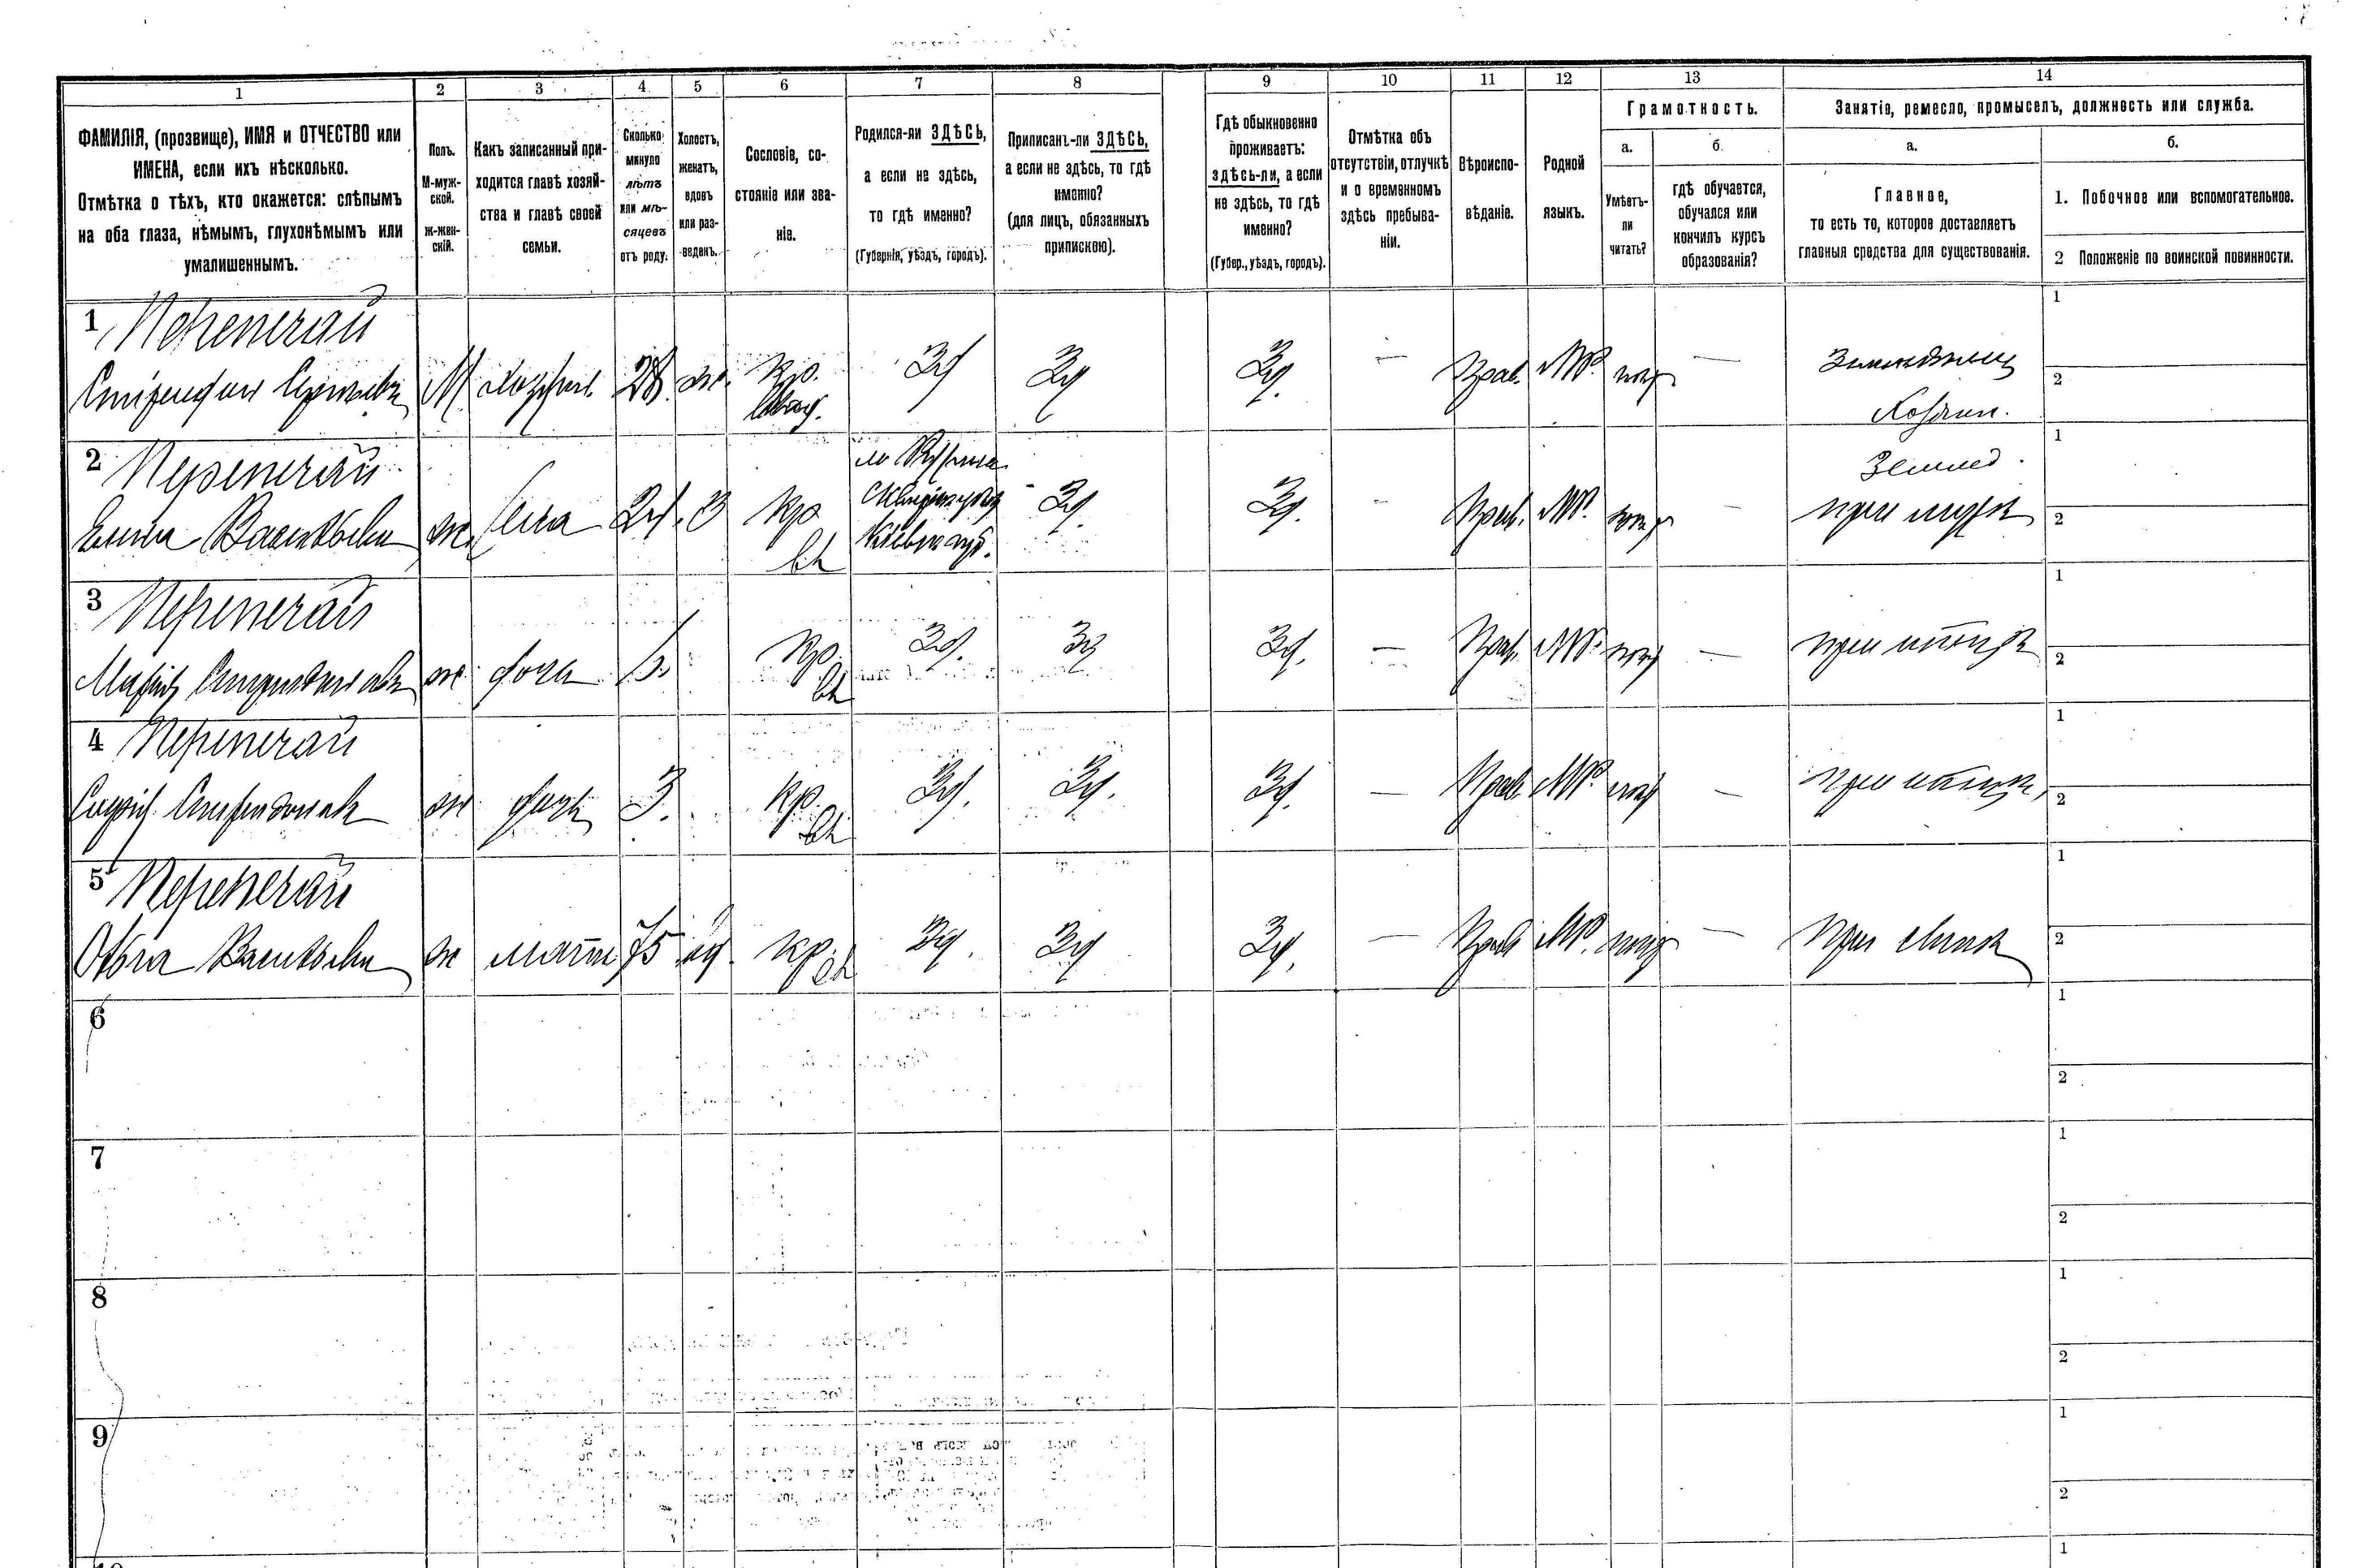 1 2 3 4 5 6 7 8 9 10 11 12 13 14
ФАМИЛІЯ, (прозвище), ИМЯ и ОТЧЕСТВО или
ИМЕНА, если ихъ нѣсколько.
Отмѣтка о тѣхъ, кто окажется: слѣпымъ
на оба глаза, нѣмымъ, глухонѣмымъ или
умалишеннымъ.
Полъ.
М-муж-
ской.
ж-жен-
скій.
Какъ записанный при-
ходится главѣ хозяй-
ства и главѣ своей
семьи.
Сколько
минуло
лѣтъ
или мѣ-
сяцевъ
отъ роду.
Холостъ,
женатъ,
вдовъ
или раз-
веденъ.
Сословіе, со-
стояніе или зва-
ніе.
Родился-ли ЗДѢСЬ,
а если не здѣсь,
то гдѣ именно?
(Губернія, уѣздъ, городъ).
Приписанъ-ли ЗДѢСЬ,
а если не здѣсь, то гдѣ
именно?
(для лицъ, обязанныхъ
припискою).
Гдѣ обыкновенно
проживаетъ:
здѣсь-ли, а если
не здѣсь, то гдѣ
именно?
(Губер., уѣздъ, городъ).
Отмѣтка объ
отсутствіи, отлучкѣ
и о временномъ
здѣсь пребыва-
ніи.
Вѣроиспо-
вѣданіе.
Родной
языкъ.
Грамотность.
а.
Умѣетъ-
ли
читать?
б.
гдѣ обучается,
обучался или
кончилъ курсъ
образованія?
Занятіе, ремесло, промыселъ, должность или служба.
а.
Главное,
то есть то, которое доставляетъ
главныя средства для существованія.
б.
1. Побочное или вспомогательное.
2 Положеніе по воинской повинности.
1 Перепечай 1
М 28 ж. Кр. Зд Зд Зд. — Прав. МР. — 2
2 Перепечай Землед. 1
Васильева ж. 24. З Кр Кіевск губ. Зд. Зд. - Прав. МР. при мужѣ 2
3 Перепечай 1
Марія ж дочь 5. Кр. Зд. Зд Зд. — Прав. МР. — при отцѣ 2
4 Перепечай 1
ж дочь 3. Кр. Зд. Зд. Зд. — Прав МР. — при отцѣ 2
5 Перепечай 1
Васильева ж мать 75 Кр. Зд. Зд Зд. — Прав МР. — при сынѣ 2
6 1
2
7 1
2
8 1
2
9 1
2
1